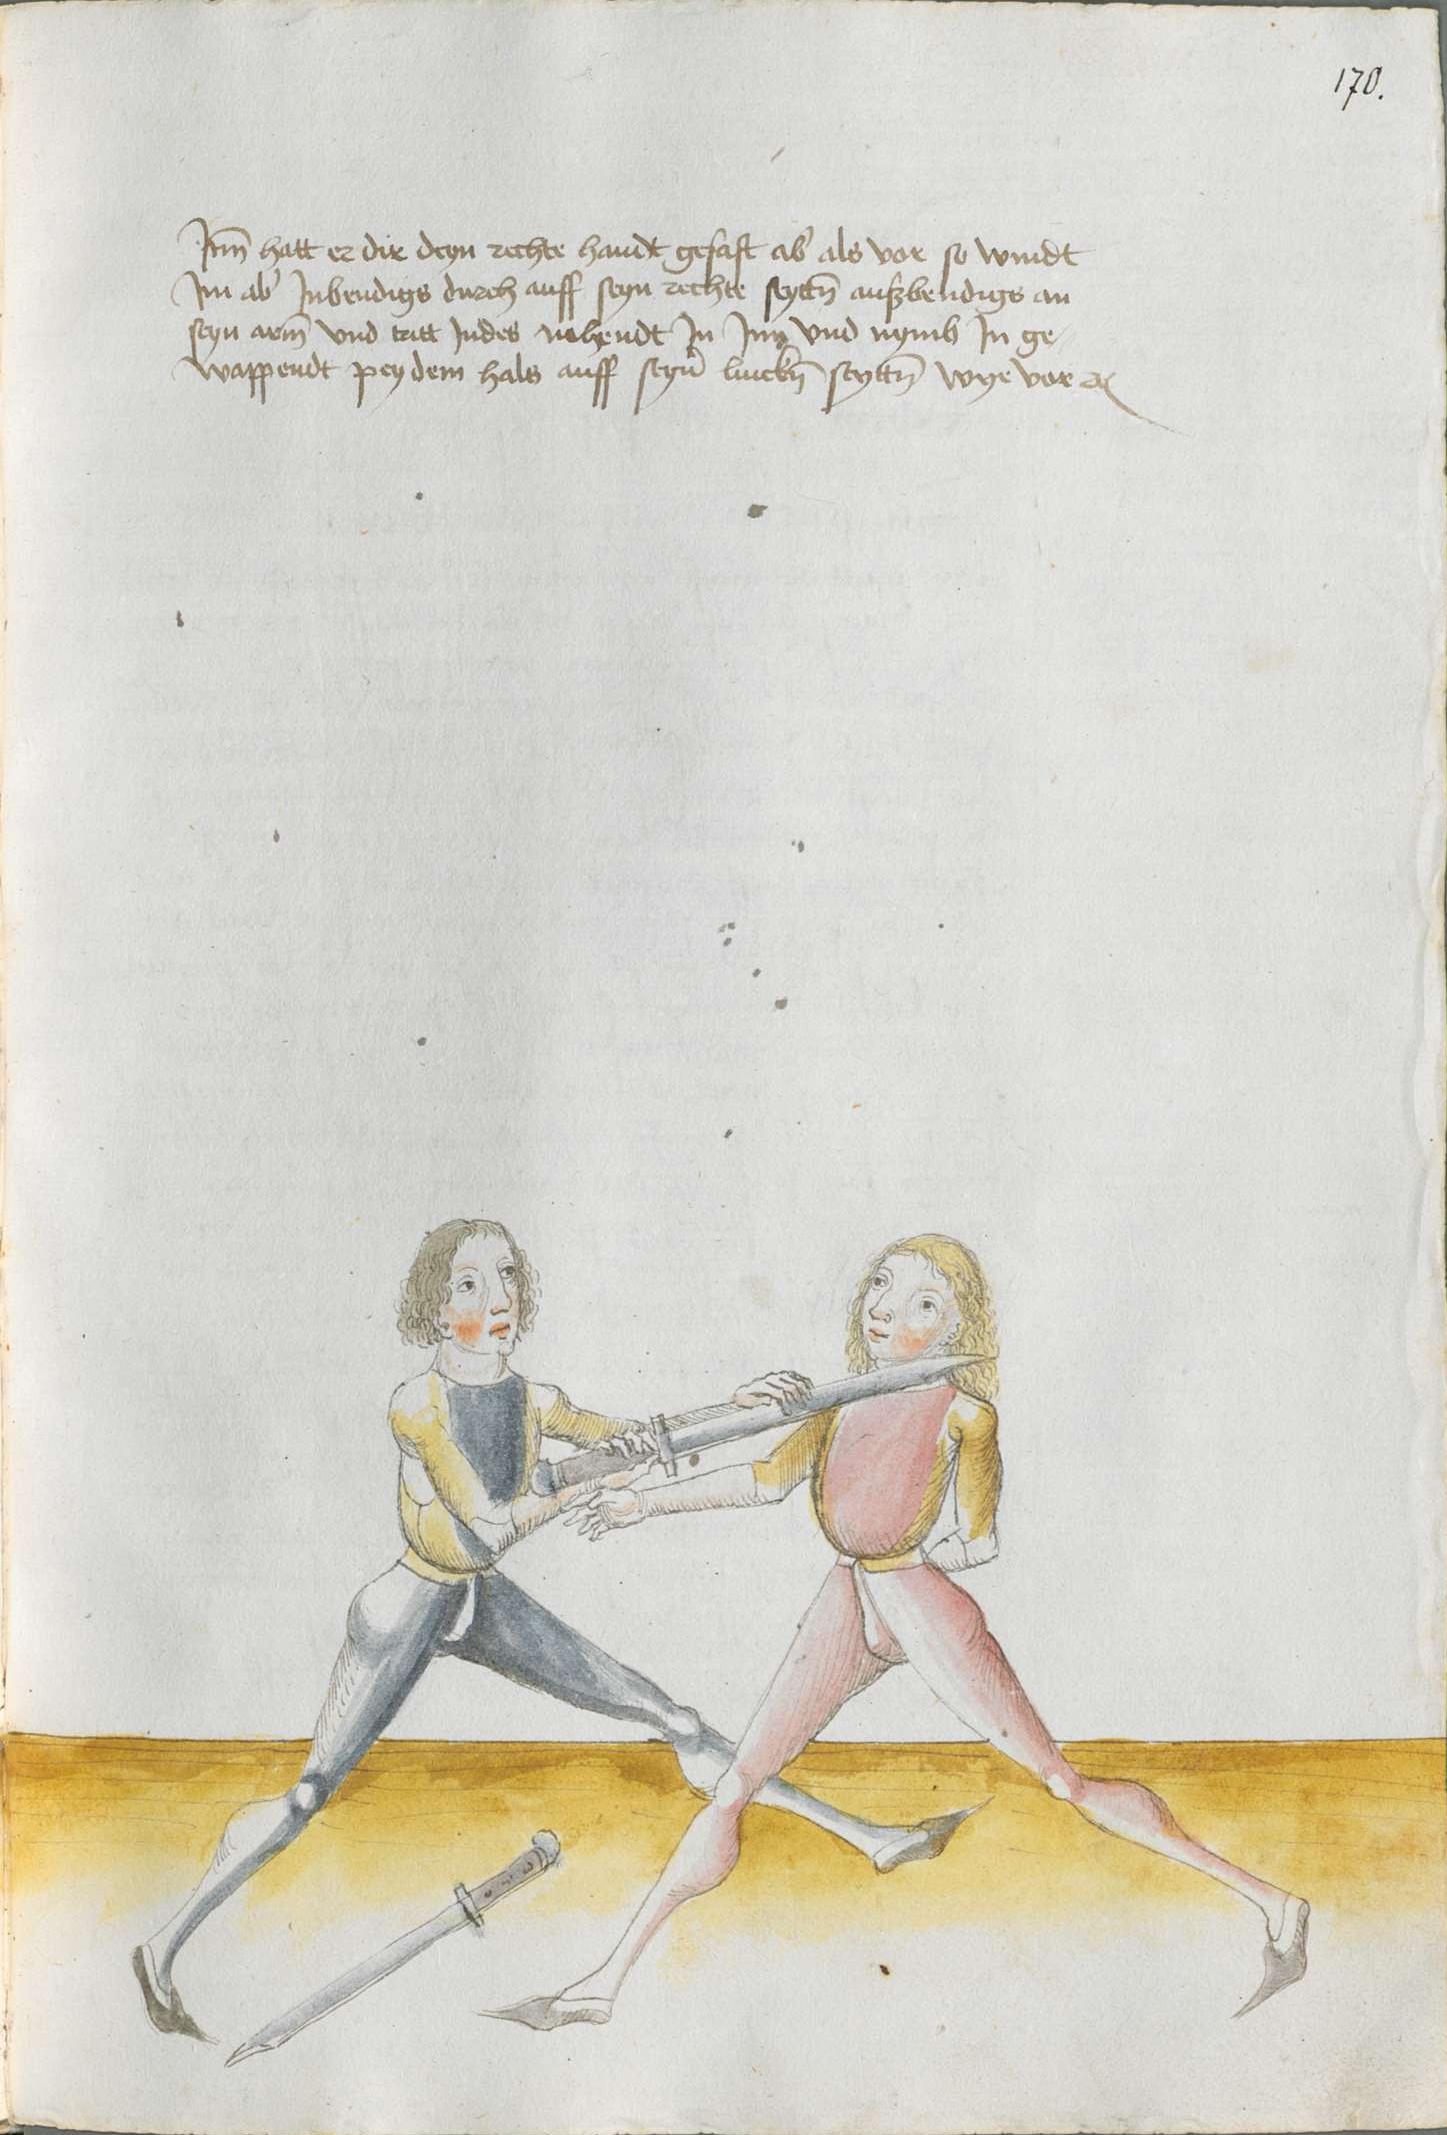 170.
Im̄ hatt er dir deyn rechte handt gefast ab' als vor so windt
Im ab' Inbendigs durch auff seyn rechte seyttn̄ auszbendigs an
seyn arm̄ vnd tritt Indes nahendt In Inn vnd nymb In ge„
wappendt pey dem hals auff seyn̄ linckn̄ seyttn̄ wye vor ꝛc